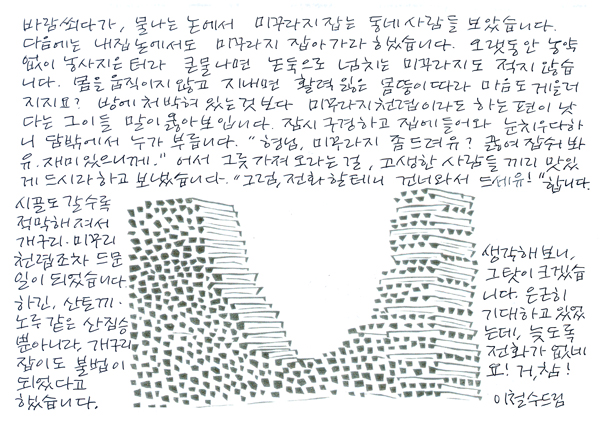 바람쐬다가, 물나는 논에서 미꾸라지 잡는 동네사람들 보았습니다.
다음에는 내집논에서도 미꾸라지 잡아가라 하였습니다. 오랫동안 농약
없이 농사지은터라 큰물나면 논둑으로 넘치는 미꾸라지도 적지 않습
니다. 몸을 움직이지 않고 지내면 활력 잃은 몸뚱이따라 마음도 게을러
지지요? 방에 처박혀 있는것 보다 미꾸라지천렵이라도 하는편이 낫
다는 그이들 말이 옳아보입니다. 잠시 구경하고 집에들어와 눈치우다하
니 담밖에서 누가 부릅니다. "형님, 미꾸라지 좀드려유? 끓여잡숴봐
유. 재미있으니께." 어서 그릇가져오라는걸, 고생한 사람들끼리 맛있
게 드시라하고 보냈습니다. "그럼, 전화할테니 건너와서 드세유!" 합니다.
시골도 갈수록
적막해져서
개구리·미꾸리
천렵조차 드문
일이 되었습니다
하긴, 산토끼·
노루 같은 산짐승
뿐아니라, 개구리
잡이도 불법이
되었다고
하였습니다.
생각해보니,
그 탓이 크겠습
니다. 은근히
기대하고 있었
는데, 늦도록
전화가 없네
요! 거, 참!
이철수드림